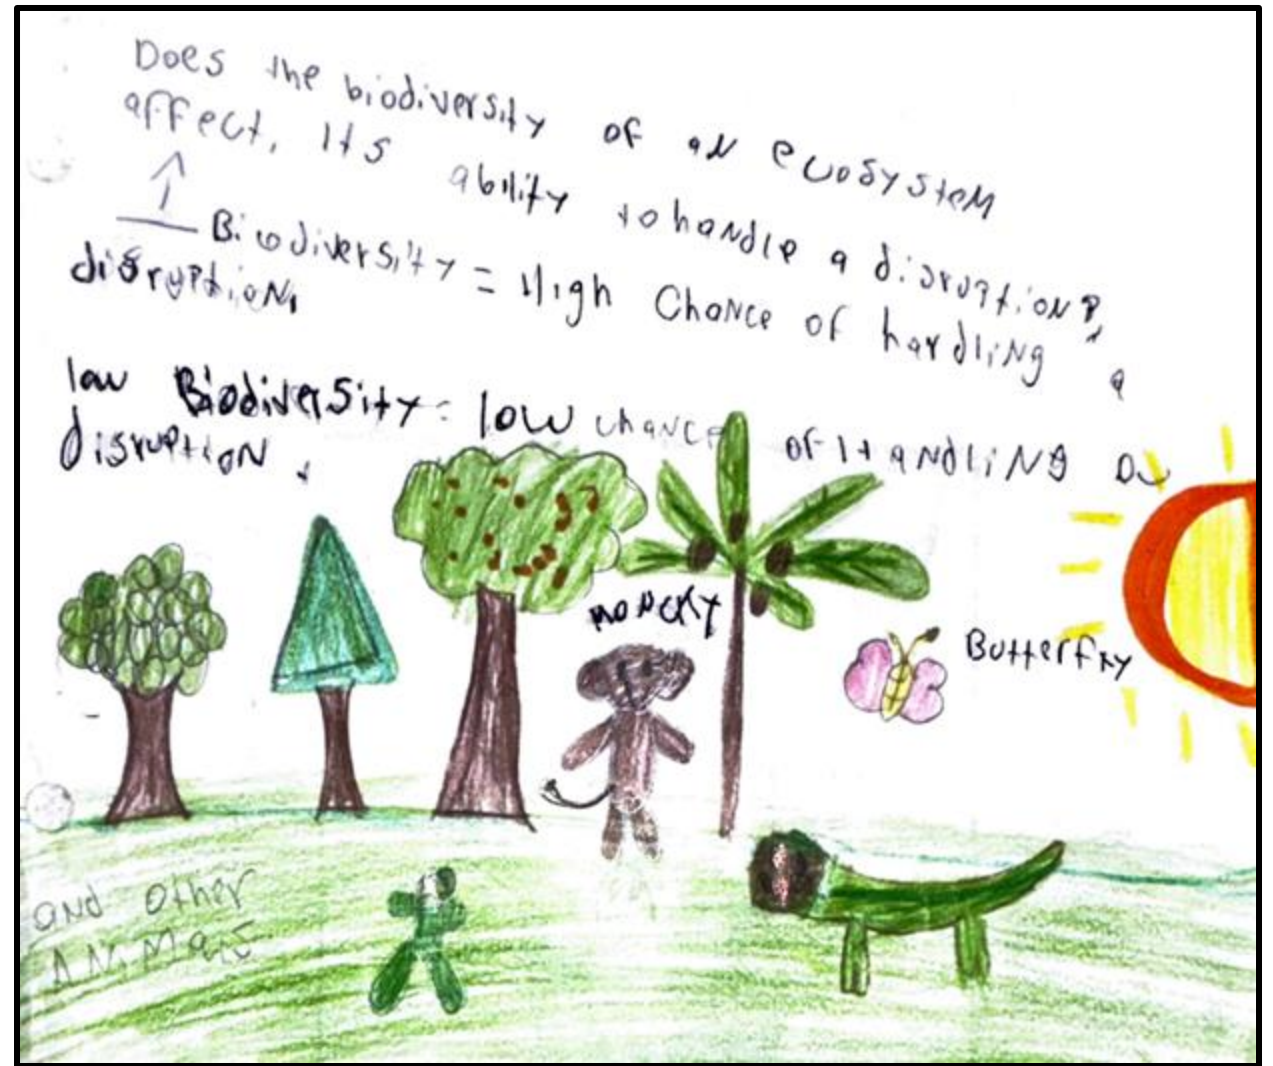 Does the biodiversity of an ecosystem
affect, Its ability to handle a disruption?
↑ Biodiversity = High Chance of hardling a
disruption.
low Biodiversity = low chance of HandLiNg a
Disruption.
monchy
Butterfry
and other
ANiMals